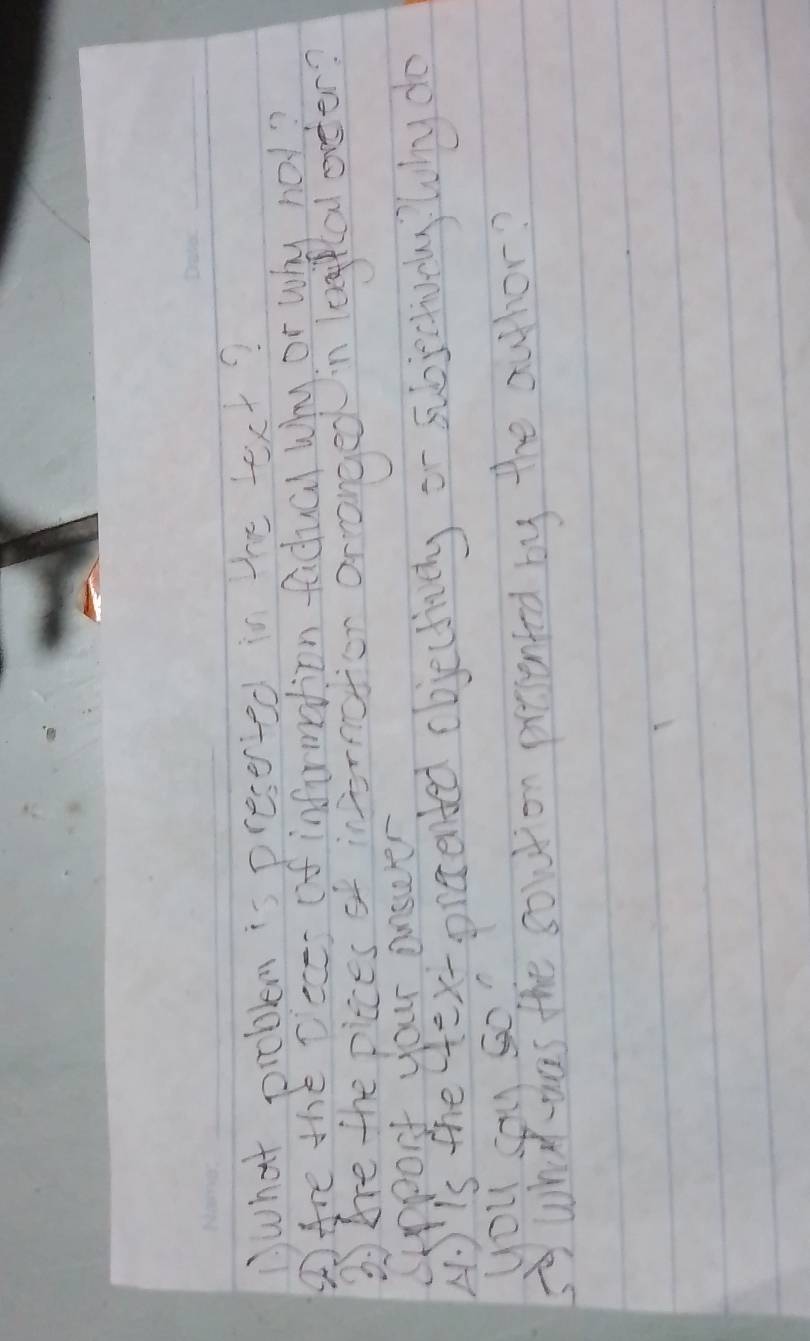 Name
Date
1.) What problem is presented in the text?
2.) Are the pieces of information factual why or why not?
3.) Are the pieces of information arranged in logical order?
support your answer
4.) Is the text presented objectively or subjectively? Why do
you say so?
5.) What was the solution presented by the author?